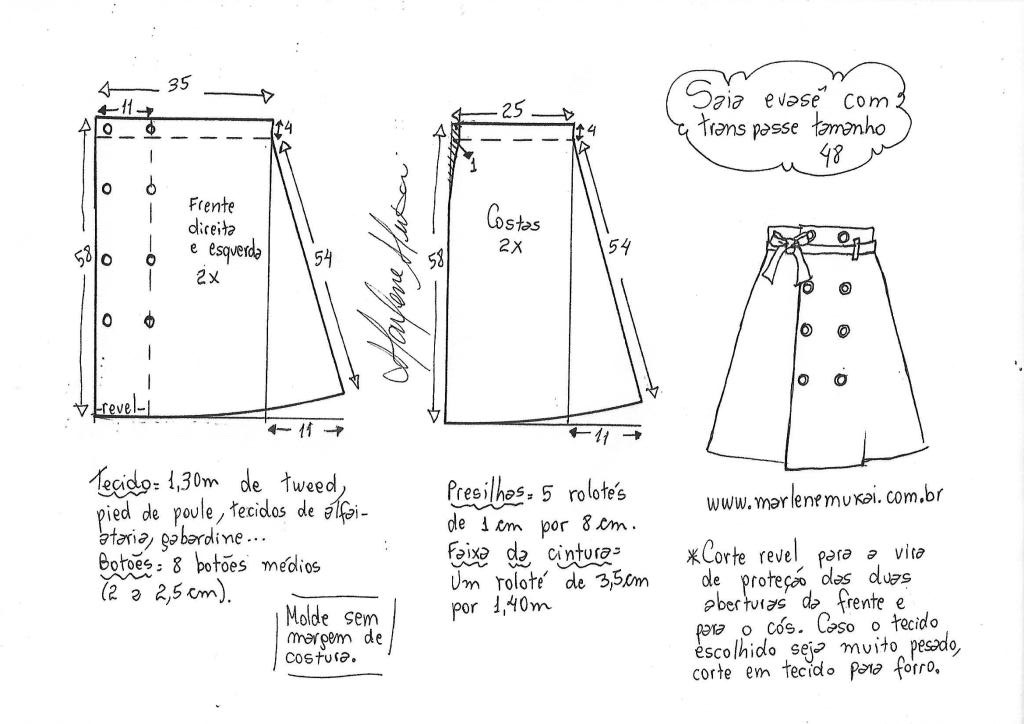 Saia evasê com
transpasse tamanho
48
35
11
4
58
Frente
direita
e esquerda
2x
54
-revel-
11
Marlene Mukai
25
4
1
58
Costas
2x
54
11
Tecido= 1,30m de tweed,
pied de poule, tecidos de alfai-
ataria, gabardine...
Botões= 8 botões médios
(2 a 2,5cm).
Molde sem
margem de
costura.
Presilhas= 5 rolotés
de 1cm por 8cm.
Faixa da cintura=
Um roloté de 3,5cm
por 1,40m
www.marlenemukai.com.br
*Corte revel para a vira
de proteção das duas
aberturas da frente e
para o cós. Caso o tecido
escolhido seja muito pesado,
corte em tecido para forro.